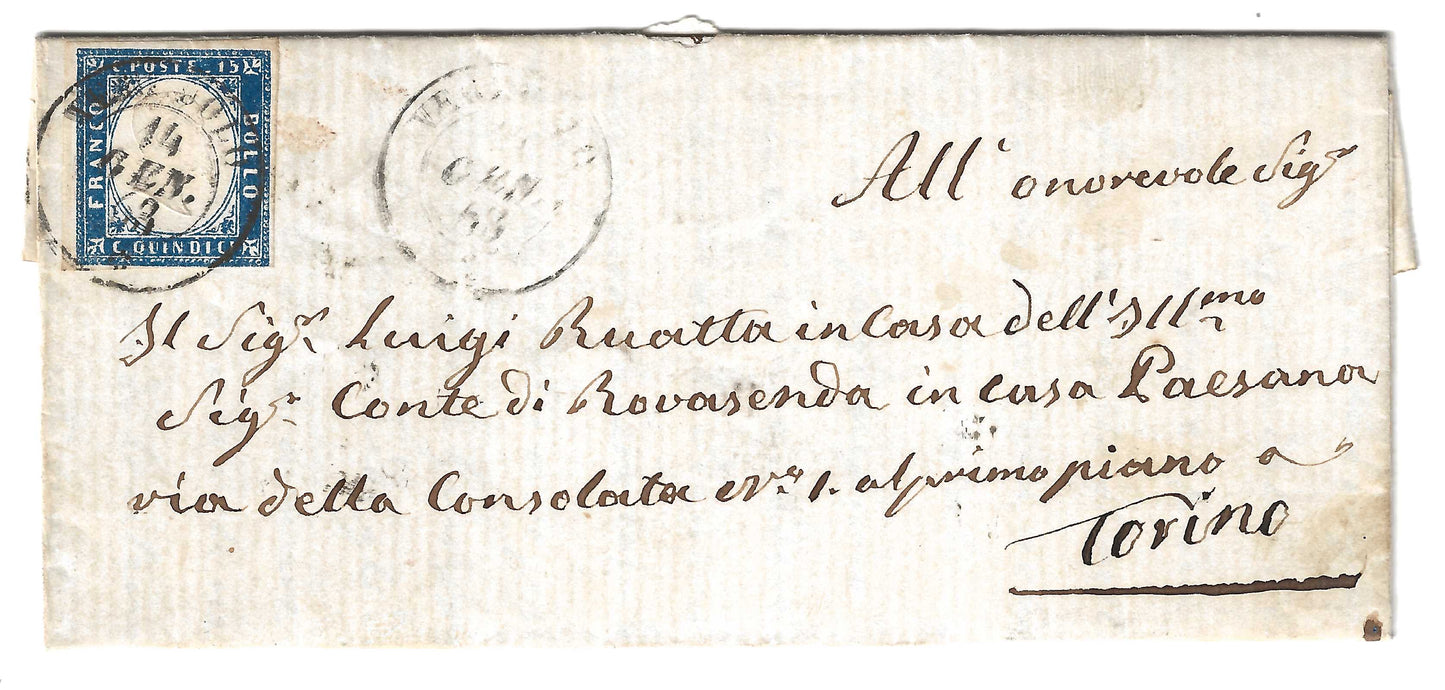 C. POSTE. 15
FRANCO
BOLLO
C. QUINDICI
14
GEN.
GEN.
All' onorevole Sigr
Il Sigr Luigi Ruatta in Casa dell'Illmo
Sigr Conte di Rovasenda in casa Paesana
via della Consolata No 1. al primo piano a
Torino